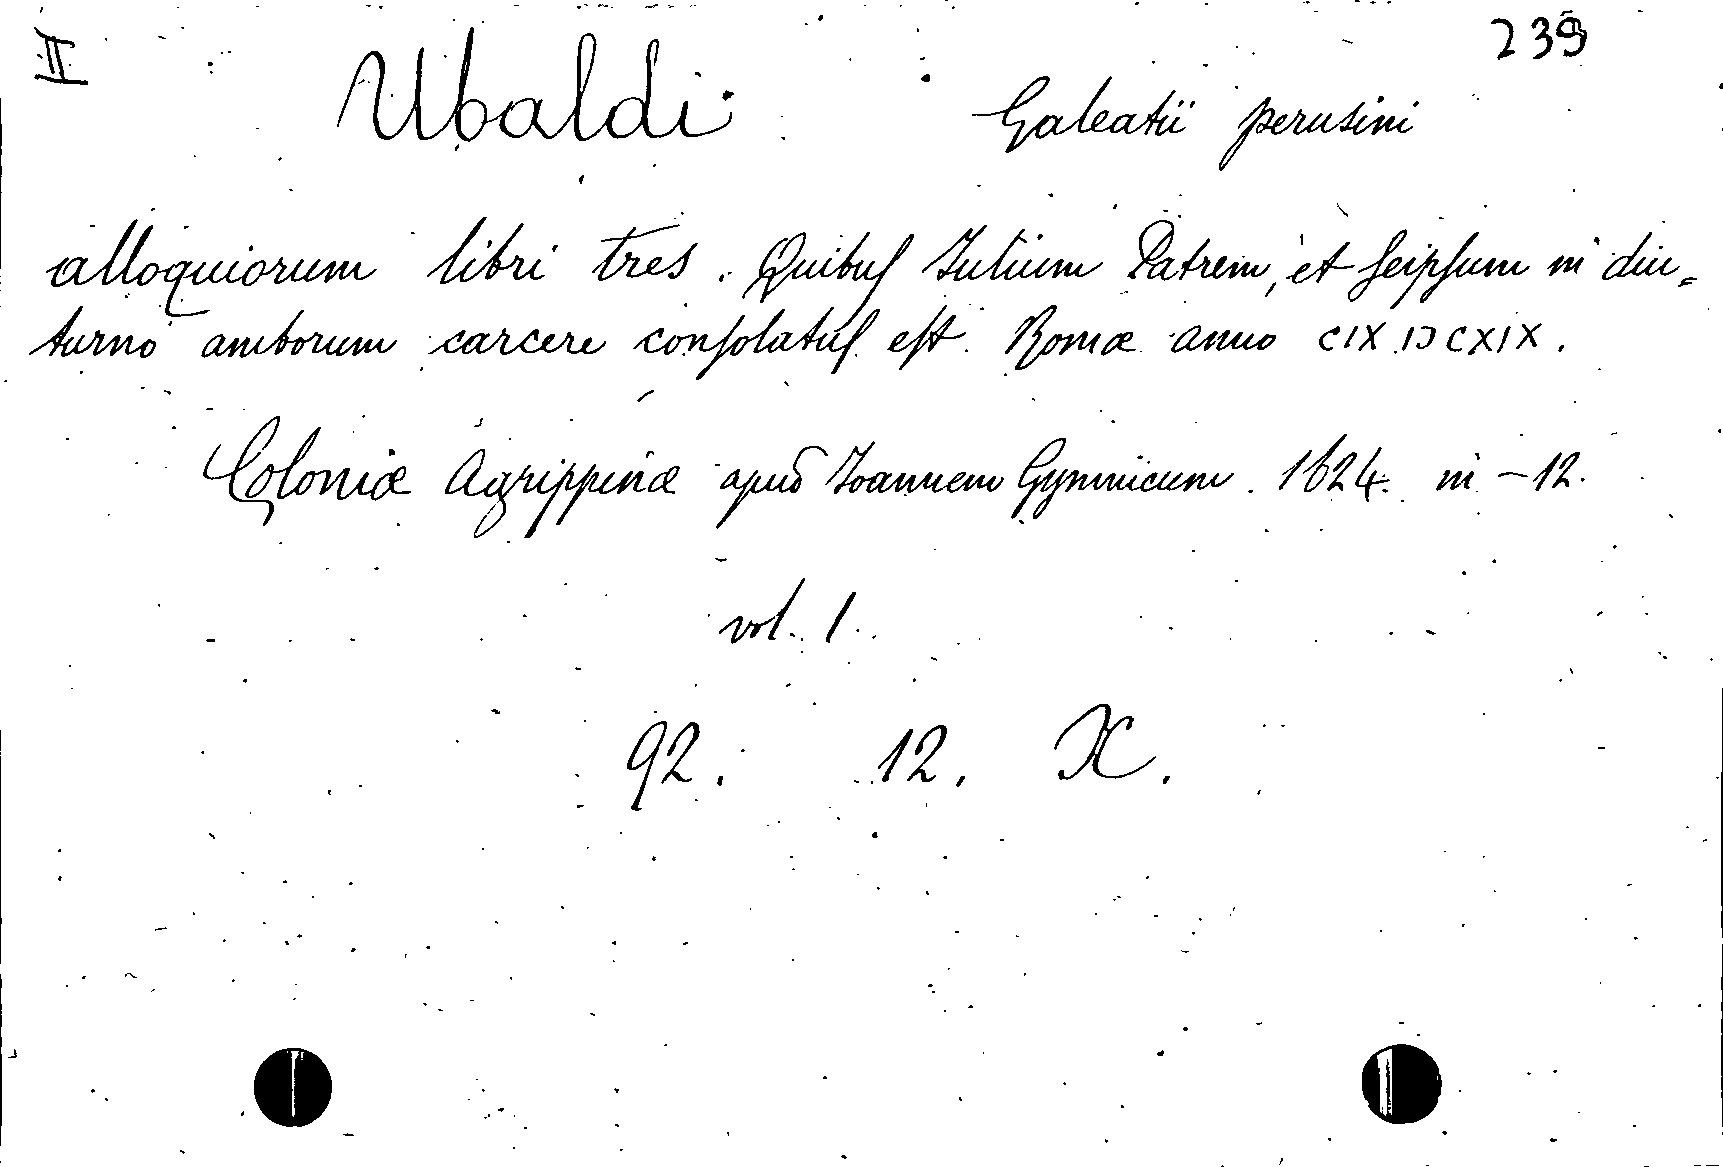 II 239
Ubaldi Galeatii perusini
alloquiorum libri tres. Quibuſ Julium Patrem, et ſeipſum in diu=
turno amborum carcere conſolatuſ eſt. Romæ anno CIX.IↃCXIX.
Coloniæ Agrippinæ apud Joannem Gymnicum. 1624. in -12.
vol. 1.
92. 12. X.